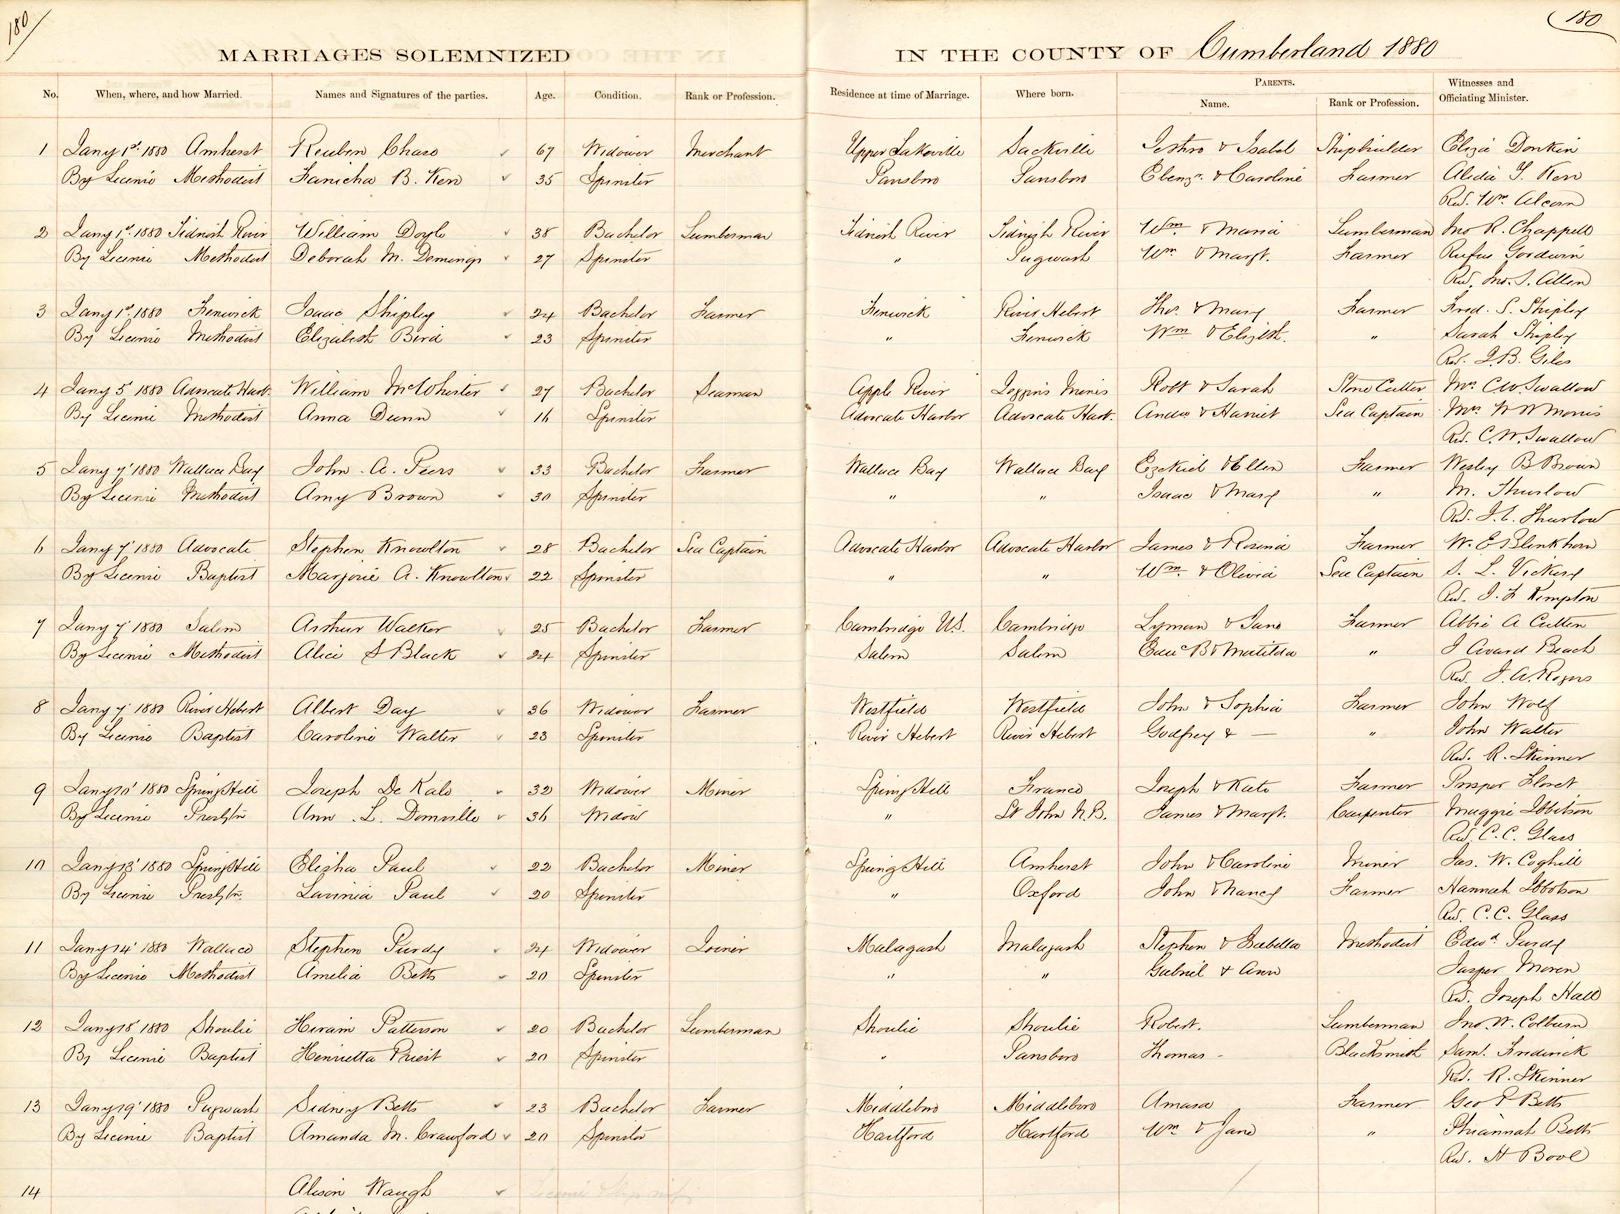 180
180
MARRIAGES SOLEMNIZED IN THE COUNTY OF Cumberland 1880
No. When, where, and how Married. Names and Signatures of the parties. Age. Condition. Rank or Profession. Residence at time of Marriage. Where born. PARENTS. Name. Rank or Profession. Witnesses and Officiating Minister.
1 Jany 1st 1880 Amherst Reuben Chase 67 Widower Merchant Upper Sackville Sackville Jethro & Isabel Shipbuilder Eliza Donkin
By Licence Methodist B. Kerr 35 Spinster Parrsboro Parrsboro Ebenzr. & Caroline Farmer Alicia Y. Kerr
Rev. Wm Alcorn
2 Jany 1st 1880 Tidnish River William Doyle 38 Bachelor Lumberman Tidnish River Tidnish River Wm & Maria Lumberman Jno R. Chappell
By Licence Methodist Deborah M. Demings 27 Spinster " Pugwash Wm & Margt. Farmer Rufus Goodwin
Rev. Jno. S. Allen
3 Jany 1st 1880 Fenwick Isaac Shipley 24 Bachelor Farmer Fenwick River Hebert Thos. & Mary Farmer Fred. S. Shipley
By Licence Methodist Elizabeth Bird 23 Spinster " Fenwick Wm & Elizbth. " Sarah Shipley
Rev. J. B. Giles
4 Jany 5 1880 Advocate Harb. William McWhirter 27 Bachelor Seaman Apple River Joggins Mines Robt & Sarah Stone Cutter Mrs. C.W. Swallow
By Licence Methodist Anna Dunn 16 Spinster Advocate Harbor Advocate Harb. Andw & Harriet Sea Captain Mrs W W Morris
Rev. C.W. Swallow
5 Jany 7' 1880 Wallace Bay John A. Peers 33 Bachelor Farmer Wallace Bay Wallace Bay Ezekiel & Ellen Farmer Wesley B Brown
By Licence Methodist Amy Brown 30 Spinster " " Isaac & Mary " M. Thurlow
Rev. J. C. Thurlow
6 Jany 7' 1880 Advocate Stephen Knowlton 28 Bachelor Sea Captain Advocate Harbor Advocate Harbor James & Rosina Farmer W. E Blenkhorn
By Licence Baptist Marjorie A. Knowlton 22 Spinster " " Wm & Olivia Sea Captain S. L. Vickery
Rev. J. F Kempton
7 Jany 7' 1880 Salem Arthur Walker 25 Bachelor Farmer Cambridge U.S. Cambridge Lyman & Jane Farmer Abbie A Cutten
By Licence Methodist Alice S Black 24 Spinster Salem Salem B & Matilda " J Avard Beach
Rev. J. A. Rogers
8 Jany 7' 1880 River Hebert Albert Day 36 Widower Farmer Westfield Westfield John & Sophia Farmer John Wolf
By Licence Baptist Caroline Walter 23 Spinster River Hebert River Hebert Godfrey & — " John Walter
Rev. R. Skinner
9 Jany 10' 1880 Spring Hill Joseph De Kalo 32 Widower Miner Spring Hill France Joseph & Kate Farmer Prosper Floret
By Licence Presbytn Ann L. Domville 36 Widow " St John N.B. James & Margt. Carpenter Maggie Ibbitson
Rev. C. C. Glass
10 Jany 13' 1880 Spring Hill Elisha Paul 22 Bachelor Miner Spring Hill Amherst John & Caroline Miner Jas. W. Coghill
By Licence Presbytn. Lavinia Paul 20 Spinster " Oxford John & Nancy Farmer Hannah Ibbotson
Rev. C. C. Glass
11 Jany 14' 1880 Wallace Stephen Purdy 24 Widower Joiner Malagash Malagash Stephen & Isabella Methodist Edwd. Purdy
By Licence Methodist Amelia Betts 20 Spinster " " Gabriel & Ann Jasper Moren
Rev. Joseph Hale
12 Jany 18' 1880 Shoulie Hiram Patterson 20 Bachelor Lumberman Shoulie Shoulie Robert. Lumberman Jno. W. Colburn
By Licence Baptist Henrietta Priest 20 Spinster " Parrsboro Thomas - Blacksmith Saml. Fredrick
Rev. R. Skinner
13 Jany 19' 1880 Pugwash Sidney Betts 23 Bachelor Farmer Middleboro Middleboro Amasa Farmer Geo P Betts
By Licence Baptist Amanda M. Crawford 20 Spinster Hartford Hartford Wm & Jane " Betts
Rev. H Bool
14 Alison Waugh